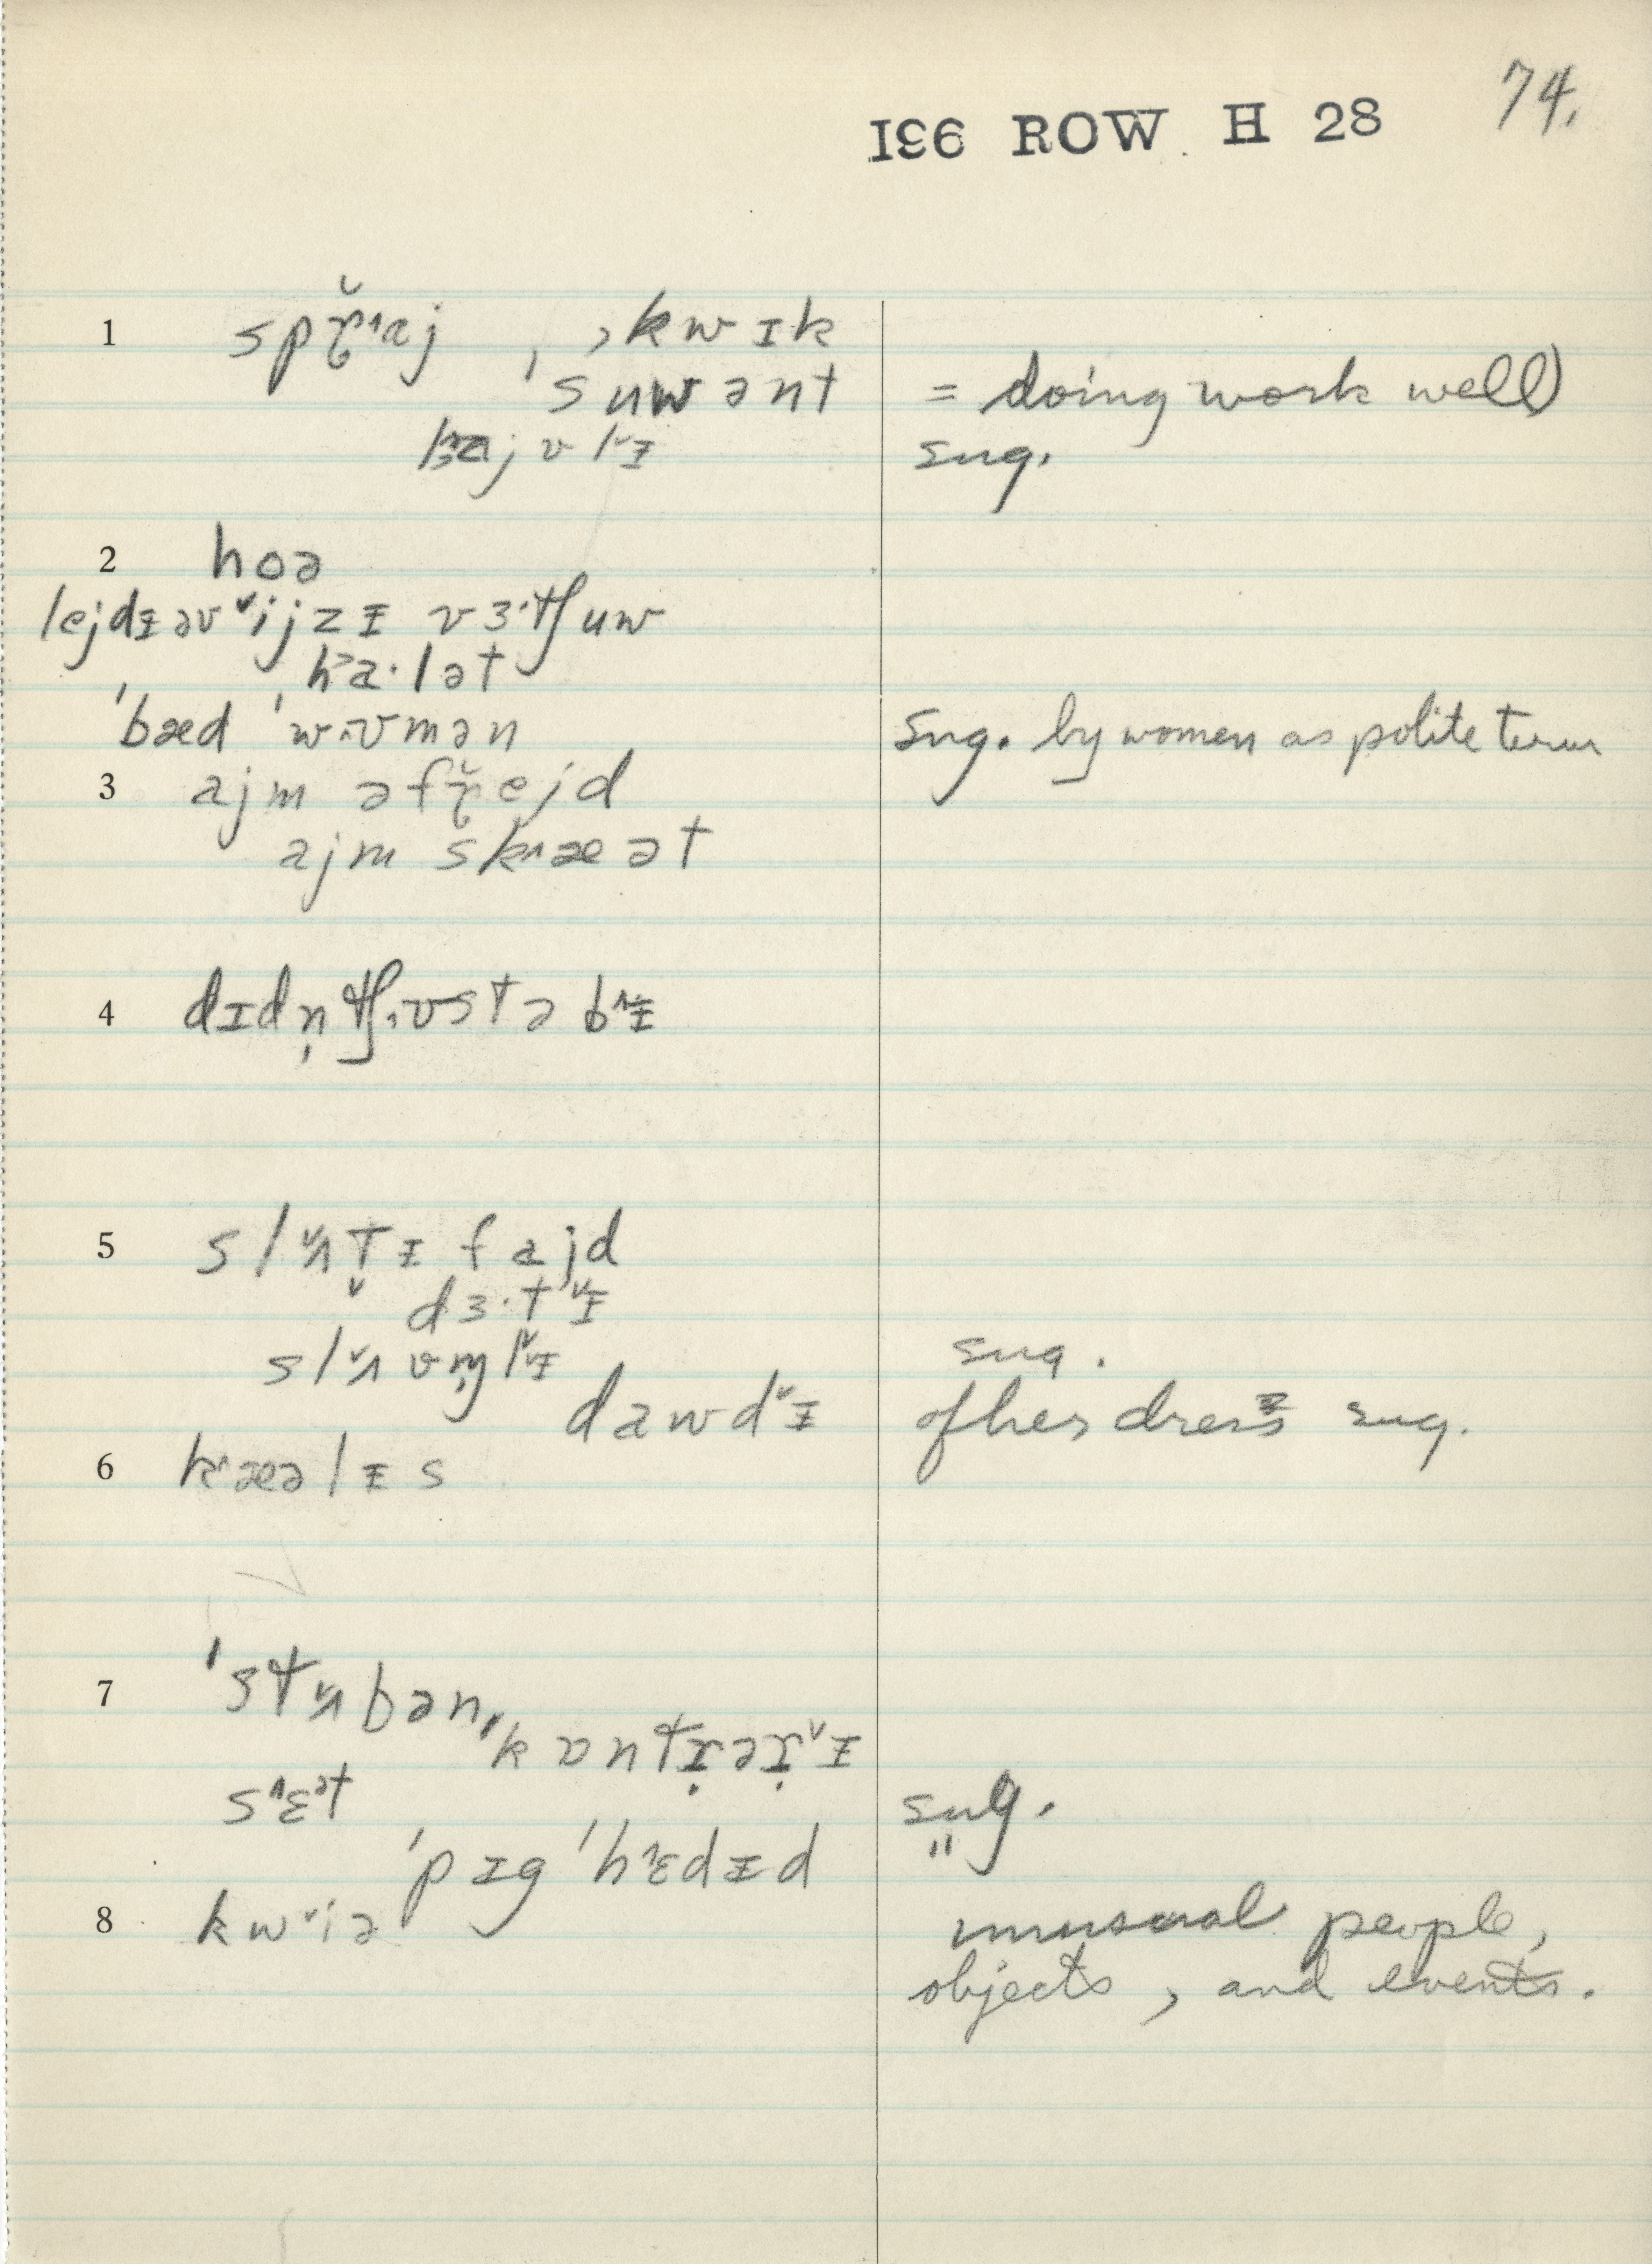 IƐ6 ROW H 28
74.
1 spɽ̆˄aj , ˌkwɪk
ˈsuwənt = doing work well)
sug.
2 hoə
lejdɪ̵ əv ˅ijzɪ̵ vɜ·tʃuw
k˃a·lət
ˈbæd ˈw˰ʊmən sug. by women as polite term
3 ajm əfɽ̆ejd
ajm sk˄æət
4 dɪdn̩tʃ˰ʊstə b˄ɪ̵
5 sl˅ʌt̬ɪ̵ fajd
dɜ·t˅ɪ̵
sug.
dawd˅ɪ̵ of her dress sug.
6 k˄æəlɪ̵s
7 ˈst˅ʌbənˌkɒntɹ̣əɹ̣˅ɪ̵
s˄ɛᵊt sug.
ˈpɪgˈh˄ɛdɪ̵d "
8 kw˅iə unusual people,
objects, and events.